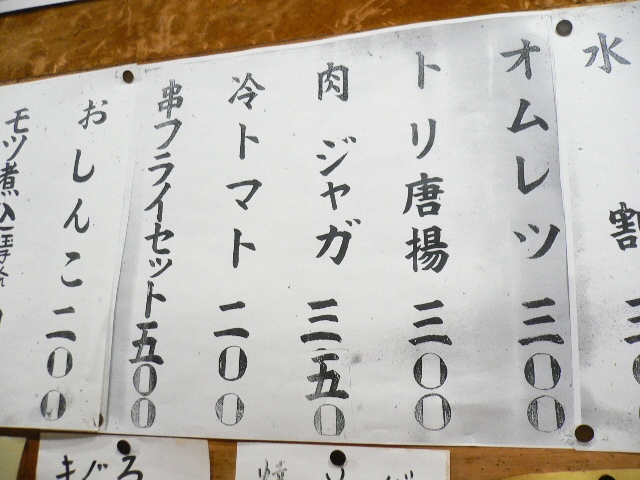 水割
オムレツ 三〇〇
トリ唐揚 三〇〇
肉ジャガ 三五〇
冷トマト 二〇〇
串フライセット 五〇〇
おしんこ 二〇〇
モツ煮込